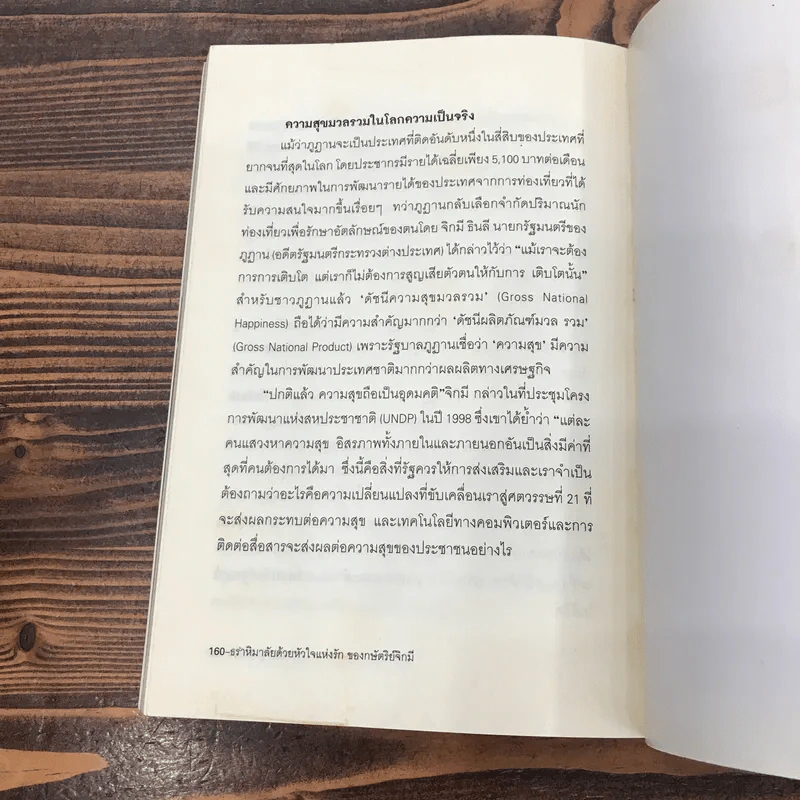 ความสุขมวลรวมในโลกความเป็นจริง
แม้ว่าภูฏานจะเป็นประเทศที่ติดอันดับหนึ่งในสี่สิบของประเทศที่
ยากจนที่สุดในโลก โดยประชากรมีรายได้เฉลี่ยเพียง 5,100 บาทต่อเดือน
และมีศักยภาพในการพัฒนารายได้ของประเทศจากการท่องเที่ยวที่ได้
รับความสนใจมากขึ้นเรื่อยๆ ทว่าภูฏานกลับเลือกจำกัดปริมาณนัก
ท่องเที่ยวเพื่อรักษาอัตลักษณ์ของตนโดย จิกมี ธินลี นายกรัฐมนตรีของ
ภูฏาน (อดีตรัฐมนตรีกระทรวงต่างประเทศ) ได้กล่าวไว้ว่า “แม้เราจะต้อง
การการเติบโต แต่เราก็ไม่ต้องการสูญเสียตัวตนให้กับการ เติบโตนั้น”
สำหรับชาวภูฏานแล้ว ‘ดัชนีความสุขมวลรวม’ (Gross National
Happiness) ถือได้ว่ามีความสำคัญมากกว่า ‘ดัชนีผลิตภัณฑ์มวล รวม’
(Gross National Product) เพราะรัฐบาลภูฏานเชื่อว่า ‘ความสุข’ มีความ
สำคัญในการพัฒนาประเทศชาติมากกว่าผลผลิตทางเศรษฐกิจ
“ปกติแล้ว ความสุขถือเป็นอุดมคติ”จิกมี กล่าวในที่ประชุมโครง
การพัฒนาแห่งสหประชาชาติ (UNDP) ในปี 1998 ซึ่งเขาได้ย้ำว่า “แต่ละ
คนแสวงหาความสุข อิสรภาพทั้งภายในและภายนอกอันเป็นสิ่งมีค่าที่
สุดที่คนต้องการได้มา ซึ่งนี้คือสิ่งที่รัฐควรให้การส่งเสริมและเราจำเป็น
ต้องถามว่าอะไรคือความเปลี่ยนแปลงที่ขับเคลื่อนเราสู่ศตวรรษที่ 21 ที่
จะส่งผลกระทบต่อความสุข และเทคโนโลยีทางคอมพิวเตอร์และการ
ติดต่อสื่อสารจะส่งผลต่อความสุขของประชาชนอย่างไร
160–ธราหิมาลัยด้วยหัวใจแห่งรัก ของกษัตริย์จิกมี